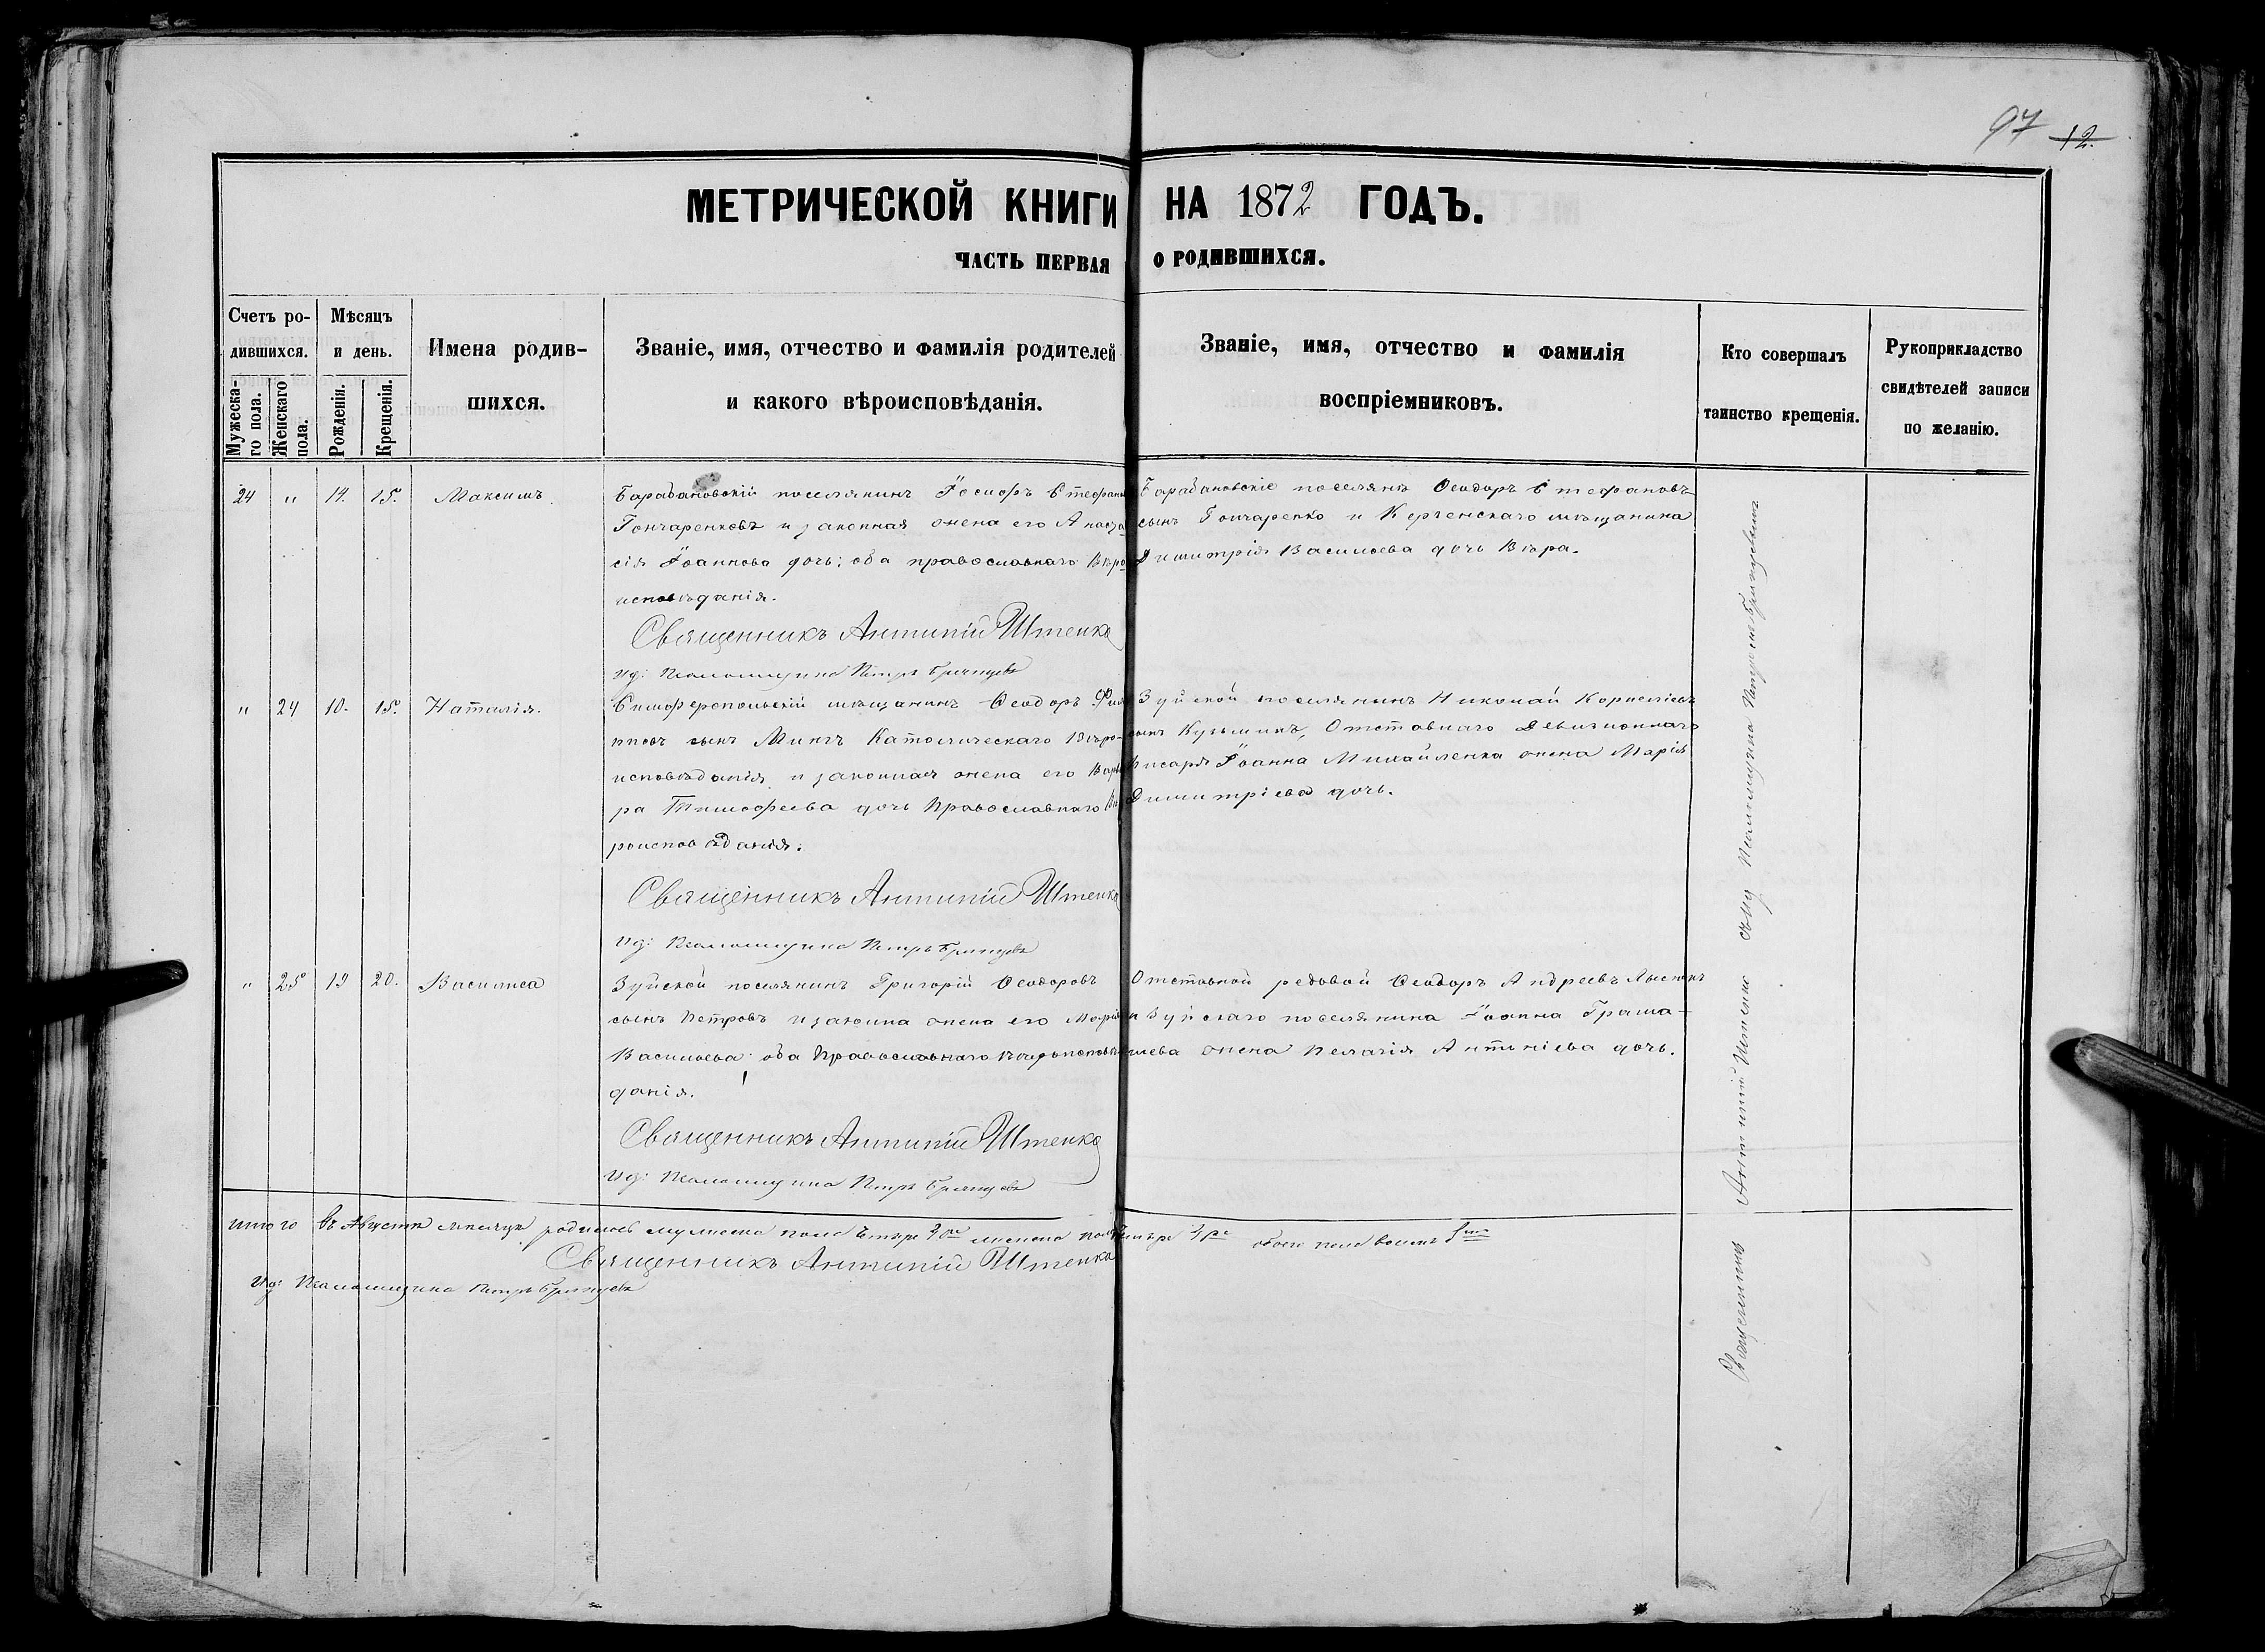 97 12.
МЕТРИЧЕСКОЙ КНИГИ НА 1872 ГОДЪ.
ЧАСТЬ ПЕРВАЯ О РОДИВШИХСЯ.
Счетъ родившихся.
Мужескаго пола.
Женскаго пола.
Мѣсяцъ и день.
Рожденія.
Крещенія.
Имена родившихся.
Званіе, имя, отчество и фамилія родителей
и какого вѣроисповѣданія.
Званіе, имя, отчество и фамилія
воспріемниковъ.
Кто совершалъ
таинство крещенія.
Рукоприкладство
свидѣтелей записи
по желанію.
24 " 14. 15. Максимъ.
Барабановскій поселянинъ Іосифъ Стефановъ
Гончаренковъ и законная жена его Анаста-
сія Іоаннова дочь; оба православнаго Вѣро-
исповѣданія.
Священникъ Антипій Штенко
Ид: Псаломщика Петръ Брянцевъ
Барабановскіе поселянъ Ѳеодоръ Стефановъ
сынъ Гончаренко и Керченскаго мѣщанина
Димитрія Васильева дочь Вѣра.
" 24 10. 15. Наталія.
Симферопольскій мѣщанинъ Ѳеодоръ Фили
пповъ сынъ Минхъ Католическаго Вѣро-
исповѣданія и законная жена его Варва
ра Тимофеева дочь Православнаго Вѣ
роисповѣданія.
Священникъ Антипій Штенко
Ид: Псаломщика Петръ Брянцевъ
Зуйской поселянинъ Николай Корнеліевъ
сынъ Кузьминъ, Отставнаго Девизіоннаго
Писаря Іоанна Михайленка жена Марія
Димитріева дочь.
" 25 19 20. Василиса
Зуйской поселянинъ Григорій Ѳеодоровъ
сынъ Петровъ и законна жена его Марія
Васильева оба Православнаго вѣроисповѣ
данія.
Священникъ Антипій Штенко
Ид: Псаломщика Петръ Брянцевъ
Отставной редовой Ѳеодоръ Андреевъ
и Зуйскаго поселянина Іоанна
жена Пелагія дочь.
Священникъ Антипій Штенко съ Ид Псаломщика Петромъ Брянцевымъ
итого въ Августѣ мѣсяцѣ родилось мужеска пола четыре 4ре женска пола четыре 4ре обоего пола восемь 8мь
Священникъ Антипій Штенко
Ид: Псаломщика Петръ Брянцевъ